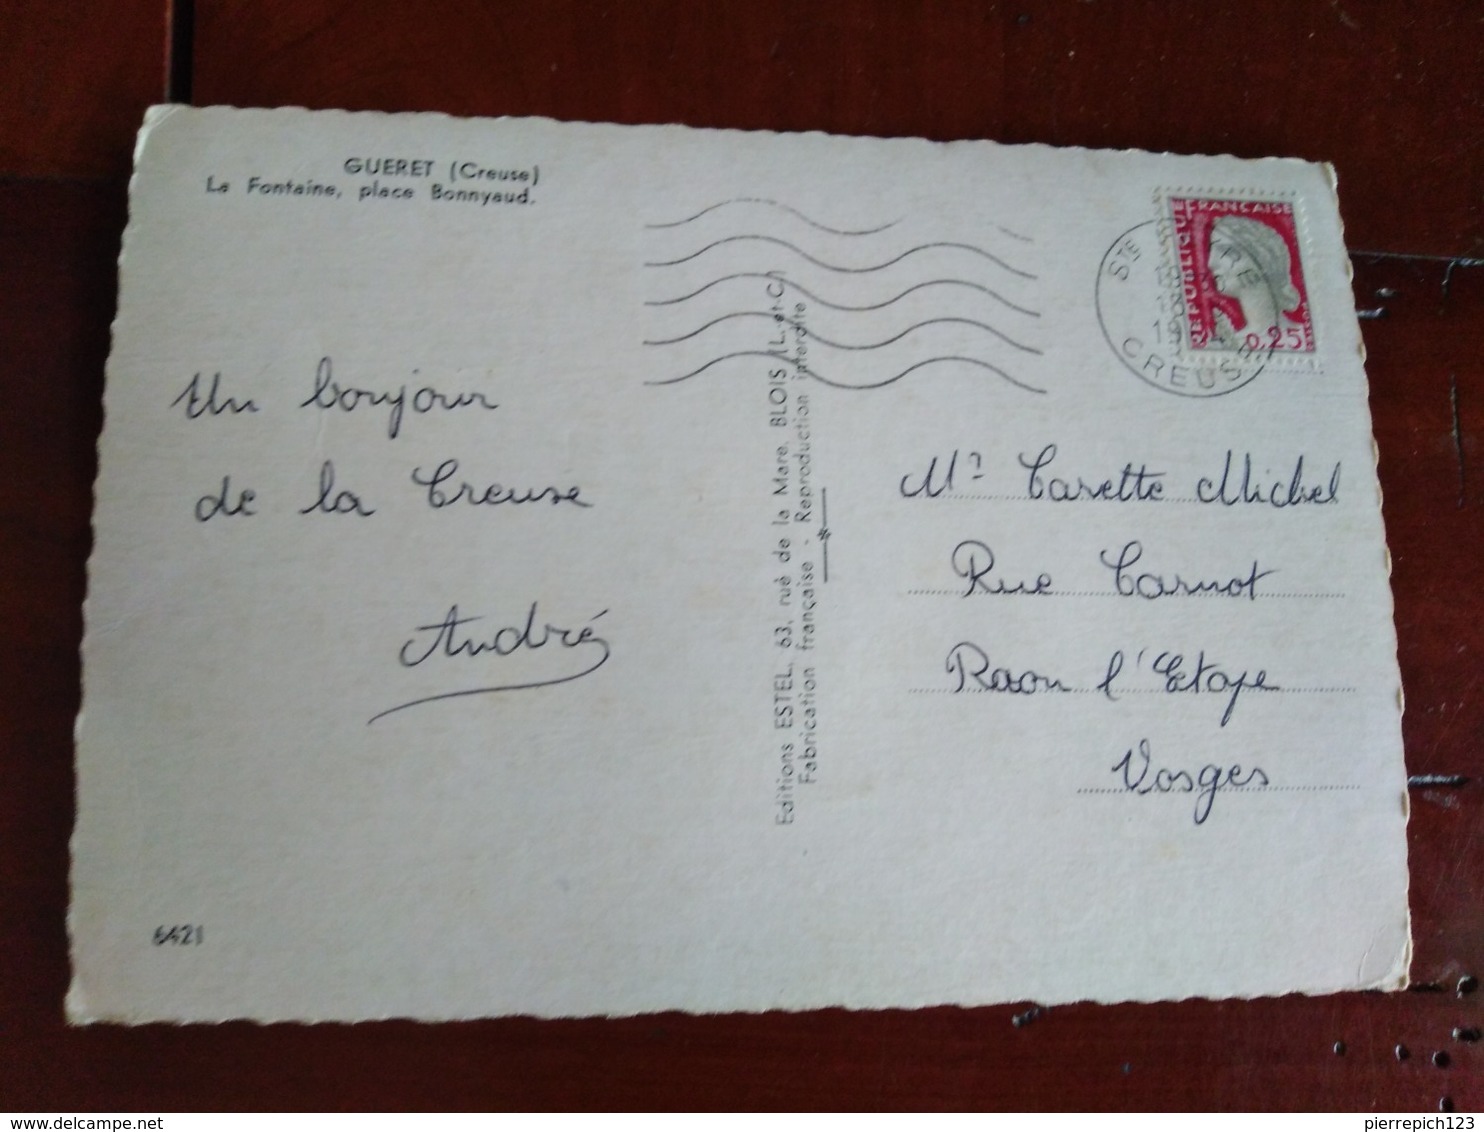 GUERET (Creuse)
La Fontaine, place Bonnyaud.
Un bonjour
de la Creuse
André
6421
Editions ESTEL, 63, rue de la Mare, BLOIS (L.-et-Ch
Fabrication française - Reproduction interdite
REPUBLIQUE FRANÇAISE
0,25
POSTES
STE
CREUSE
Mr Carette Michel
Rue Carnot
Raon l'Etape
Vosges
pierrepich123